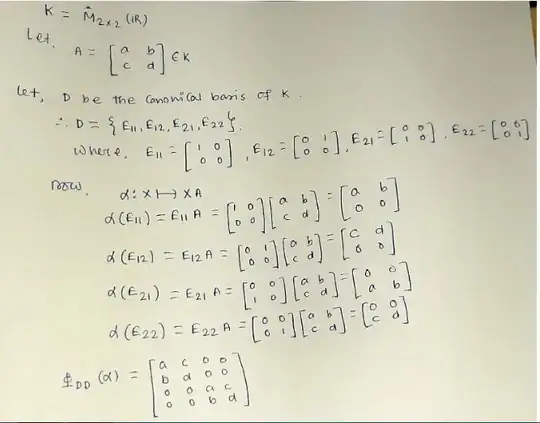 K = M̂₂ₓ₂ (IR)
Let,
A = [a b; c d] ∈ K
Let, D be the canonical basis of K.
∴ D = {E₁₁, E₁₂, E₂₁, E₂₂}.
where, E₁₁ = [1 0; 0 0], E₁₂ = [0 1; 0 0], E₂₁ = [0 0; 1 0], E₂₂ = [0 0; 0 1]
now, α: X ↦ XA
α(E₁₁) = E₁₁A = [1 0; 0 0] [a b; c d] = [a b; 0 0]
α(E₁₂) = E₁₂A = [0 1; 0 0] [a b; c d] = [c d; 0 0]
α(E₂₁) = E₂₁A = [0 0; 1 0] [a b; c d] = [0 0; a b]
α(E₂₂) = E₂₂A = [0 0; 0 1] [a b; c d] = [0 0; c d]
Φ_DD (α) = [a c 0 0; b d 0 0; 0 0 a c; 0 0 b d]